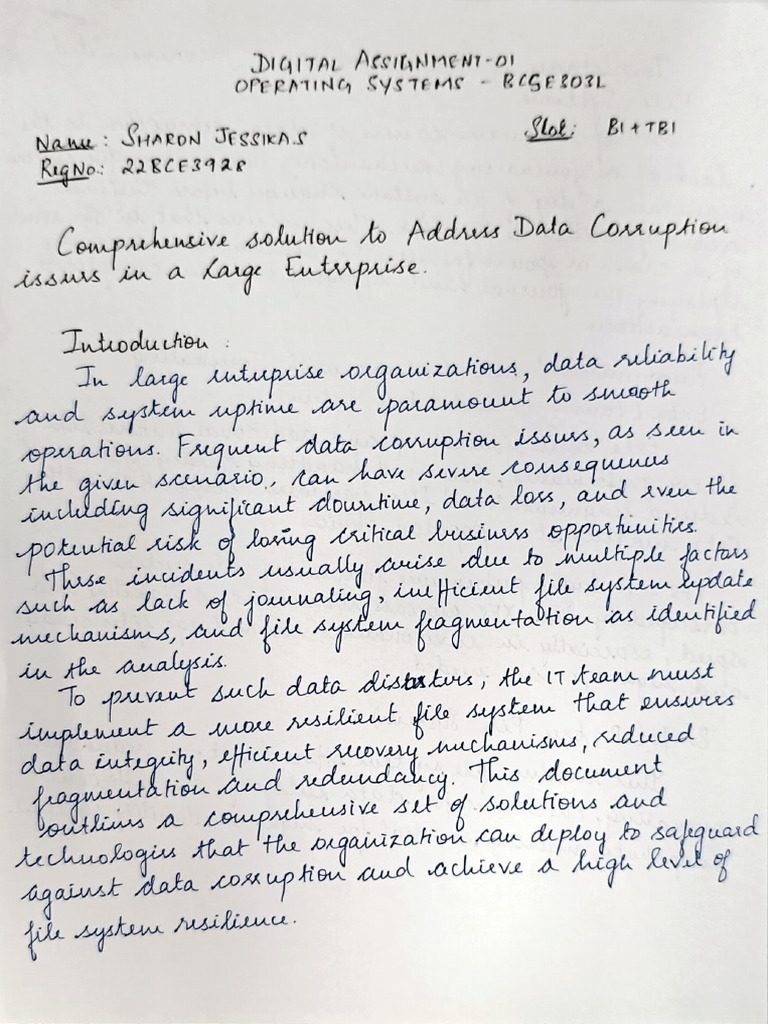 DIGITAL ASSIGNMENT-01
OPERATING SYSTEMS - BCSE303L
Name: SHARON JESSIKA.S Slot: B1+TB1
RegNo.: 22BCE3928
Comprehensive solution to Address Data Corruption
issues in a Large Enterprise.
Introduction:
In large enterprise organizations, data reliability
and system uptime are paramount to smooth
operations. Frequent data corruption issues, as seen in
the given scenario, can have severe consequences
including significant downtime, data loss, and even the
potential risk of losing critical business opportunities.
These incidents usually arise due to multiple factors
such as lack of journaling, inefficient file system update
mechanisms, and file system fragmentation as identified
in the analysis.
To prevent such data disasters, the IT team must
implement a more resilient file system that ensures
data integrity, efficient recovery mechanisms, reduced
fragmentation and redundancy. This document
outlines a comprehensive set of solutions and
technologies that the organization can deploy to safeguard
against data corruption and achieve a high level of
file system resilience.